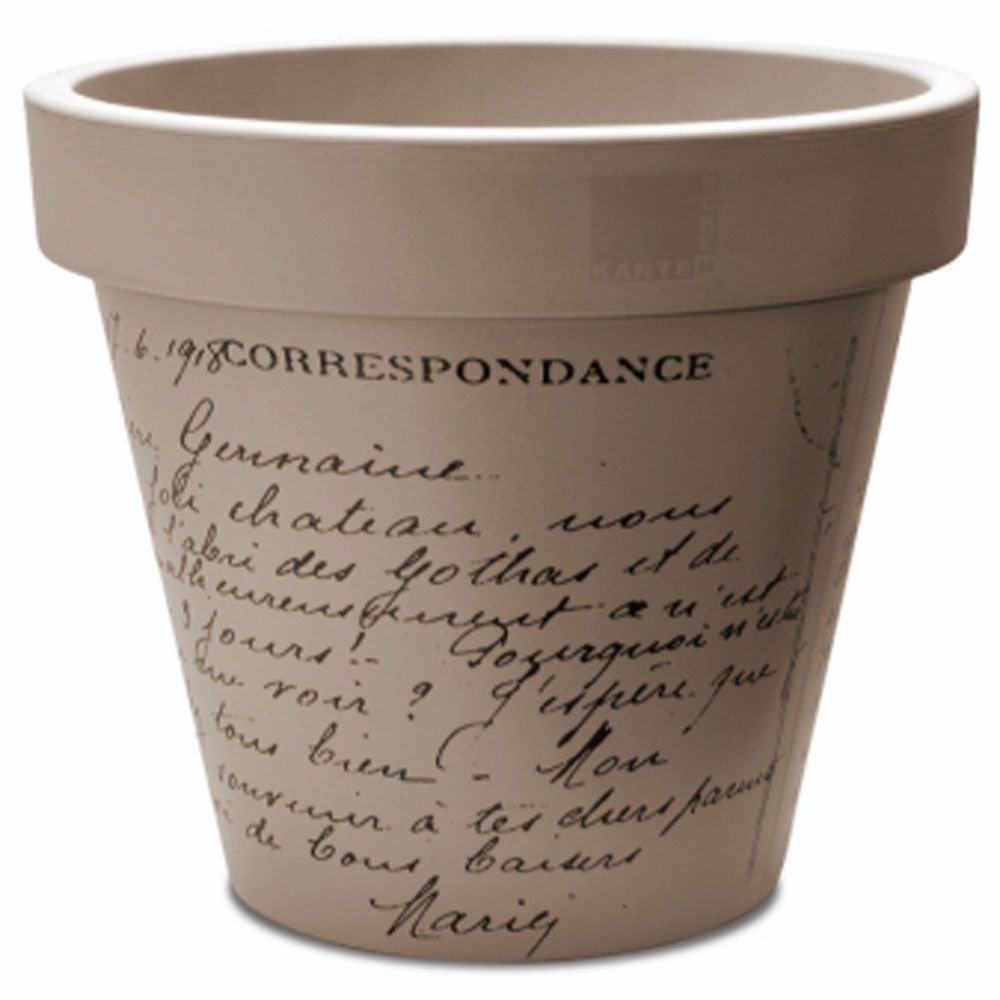 KANTE
7.6.1918 CORRESPONDANCE
Germaine
joli chateau, nous
l'abri des Gothas et de
malheureusement ce n'est
3 jours! Pourquoi n'es tu
me voir? J'espère que
tous bien - Mon
souvenir à tes chers parents
de bons baisers